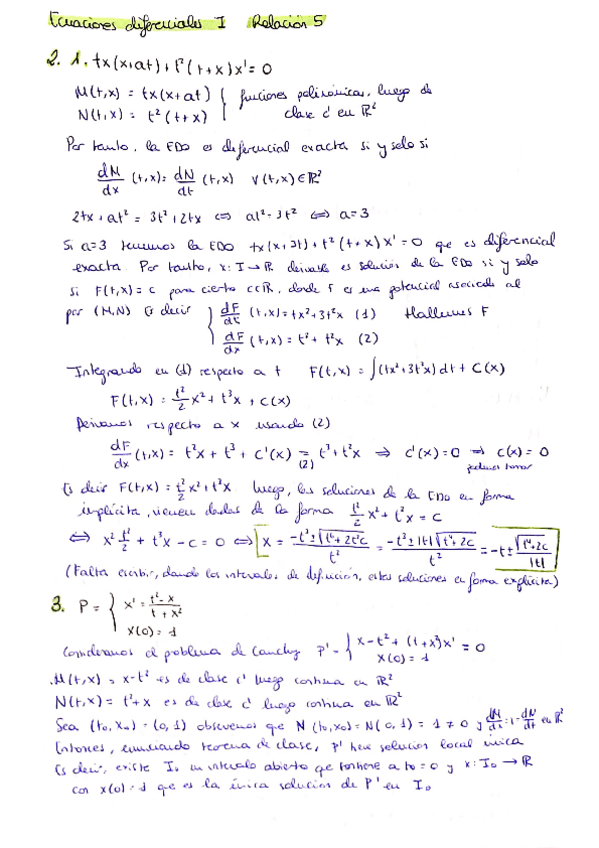 Ecuaciones diferenciales I Relación 5
2. 1. tx(x+at)+t²(t+x)x'=0
M(t,x) = tx(x+at) } funciones polinómicas, luego de
N(t,x) = t²(t+x) clase c' en ℝ²
Por tanto, la EDO es diferencial exacta si y solo si
dM/dx (t,x) = dN/dt (t,x) ∀(t,x)∈ℝ²
2tx+at² = 3t²+2tx ⇔ at²=3t² ⇔ a=3
Si a=3 tenemos la EDO tx(x+3t)+t²(t+x)x'=0 que es diferencial
exacta. Por tanto, x: I→ℝ derivable es solución de la EDO si y solo
si F(t,x)=c para cierto c∈ℝ, donde F es una potencial asociada al
par (M,N) Es decir { dF/dt (t,x)=tx²+3t²x (1) Hallemos F
dF/dx (t,x)= t³+t²x (2)
Integrando en (1) respecto a t F(t,x) = ∫(tx²+3t²x)dt + C(x)
F(t,x) = t²/2 x² + t³x + C(x)
Derivamos respecto a x usando (2)
dF/dx (t,x) = t²x + t³ + C'(x) =(2) t³+t²x ⇒ c'(x)=0 ⇒ c(x)=0
podemos tomar
Es decir F(t,x)= t²/2 x²+t³x luego, las soluciones de la EDO en forma
implícita, vienen dadas de la forma t²/2 x² + t³x = c
⇔ x² t²/2 + t³x - c = 0 ⇔ x = (-t³±√(t⁶+2t²c))/t² = (-t³±|t|√(t⁴+2c))/t² = -t±√(t⁴+2c)/|t|
(Falta escribir, dando los intervalos de definición, estas soluciones en forma explícita)
3. P = { x' = (t²-x)/(t+x²)
x(0)=1
Consideramos el problema de Cauchy P' = { x-t²+(t+x²)x' = 0
x(0)=1
M(t,x) = x-t² es de clase c' luego continua en ℝ²
N(t,x) = t²+x es de clase c' luego continua en ℝ²
Sea (t₀,x₀) = (0,1) observemos que N(t₀,x₀)=N(0,1) = 1≠0 y dM/dx=1=dN/dt en ℝ²
Entonces, enunciando teorema de clase, P' tiene solución local única
Es decir, existe I₀ un intervalo abierto que contiene a t₀=0 y x: I₀→ℝ
con x(0)=1 que es la única solución de P' en I₀